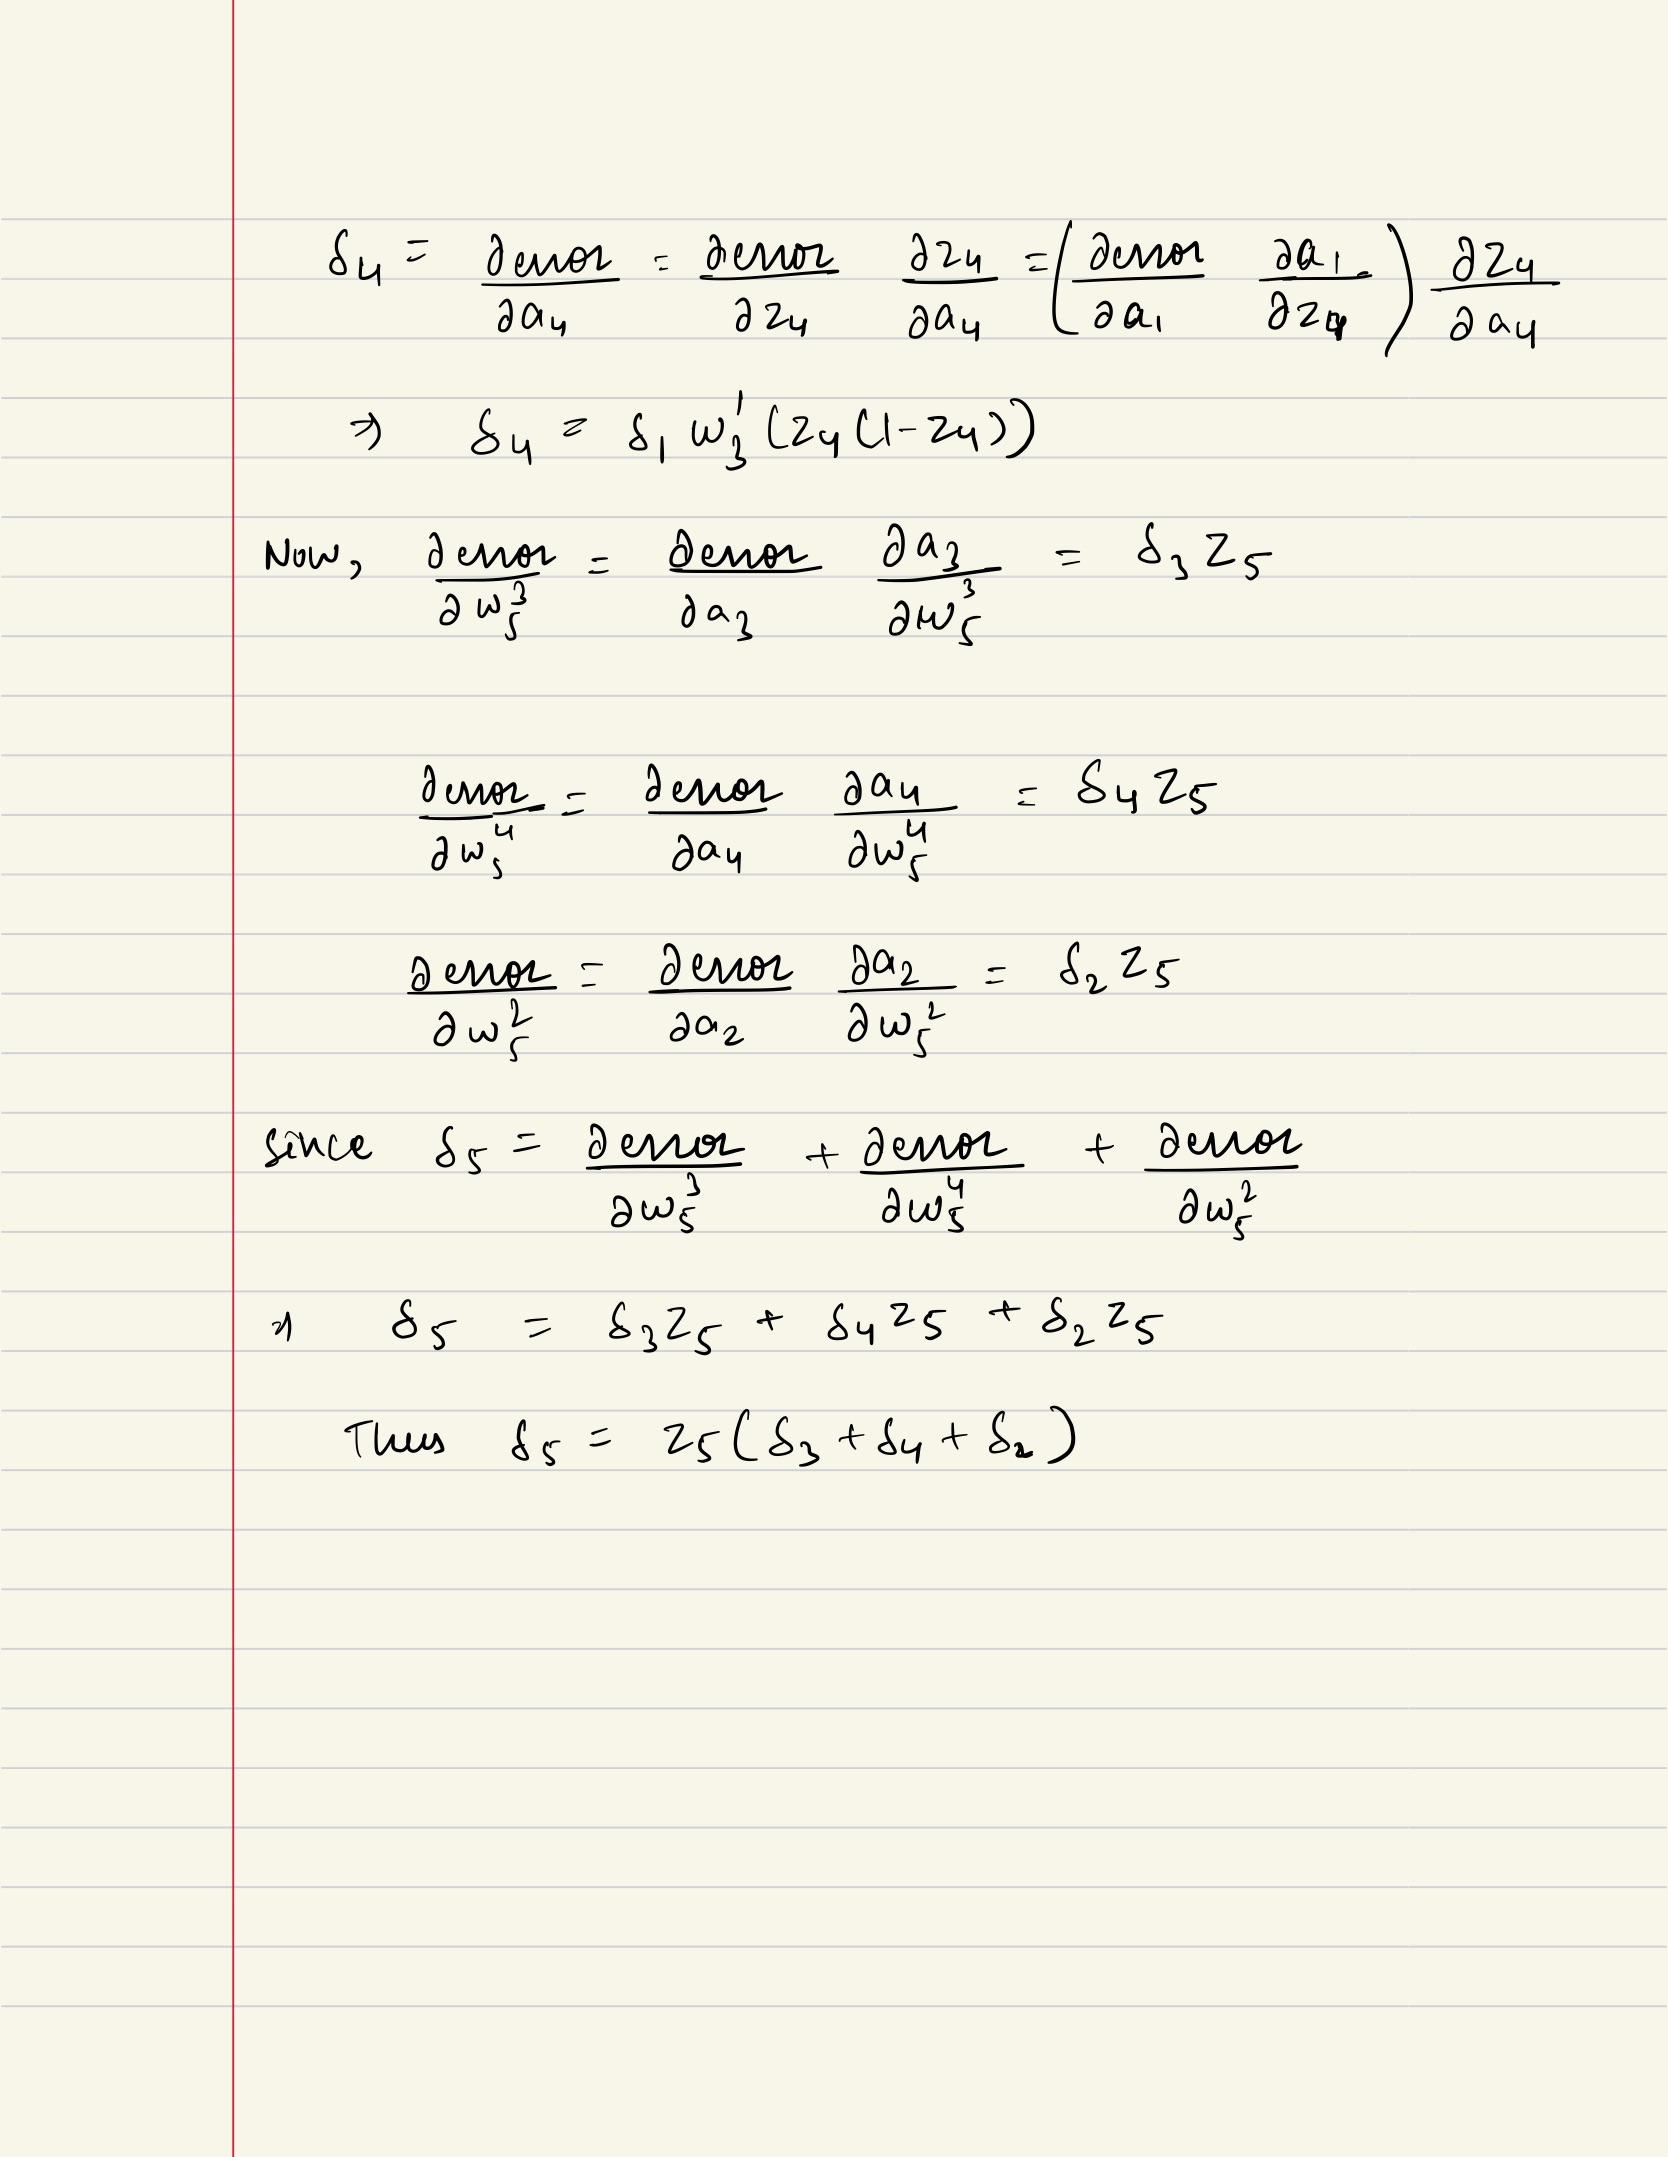 δ₄ = ∂error/∂a₄ = ∂error/∂z₄ ∂z₄/∂a₄ = (∂error/∂a₁ ∂a₁/∂z₄) ∂z₄/∂a₄
⇒ δ₄ = δ₁ w₃¹ (z₄(1-z₄))
Now, ∂error/∂w₅³ = ∂error/∂a₃ ∂a₃/∂w₅³ = δ₃ z₅
∂error/∂w₅⁴ = ∂error/∂a₄ ∂a₄/∂w₅⁴ = δ₄ z₅
∂error/∂w₅² = ∂error/∂a₂ ∂a₂/∂w₅² = δ₂ z₅
since δ₅ = ∂error/∂w₅³ + ∂error/∂w₅⁴ + ∂error/∂w₅²
⇒ δ₅ = δ₃z₅ + δ₄z₅ + δ₂z₅
Thus δ₅ = z₅(δ₃ + δ₄ + δ₂)